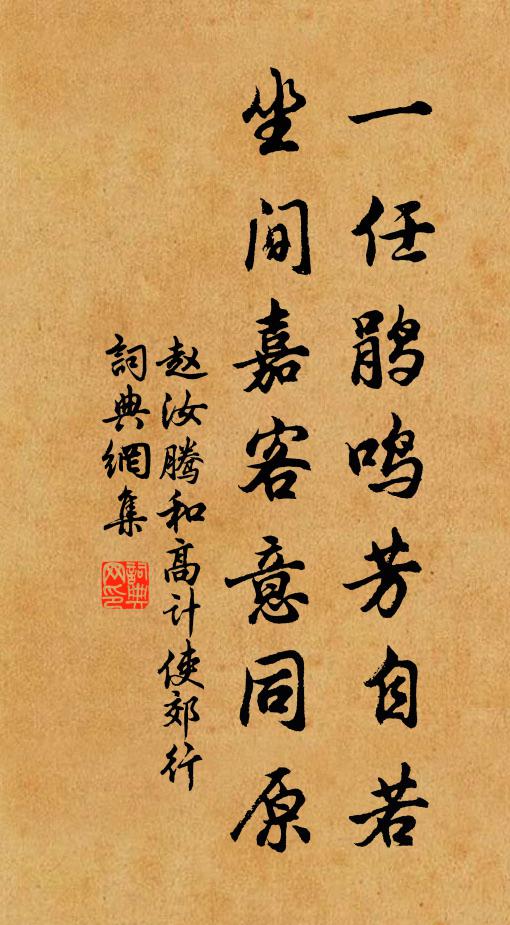 一任鹃鸣芳自若
坐间嘉客意同原
赵汝腾和高计使郊行
詞典網集
詞典
网印